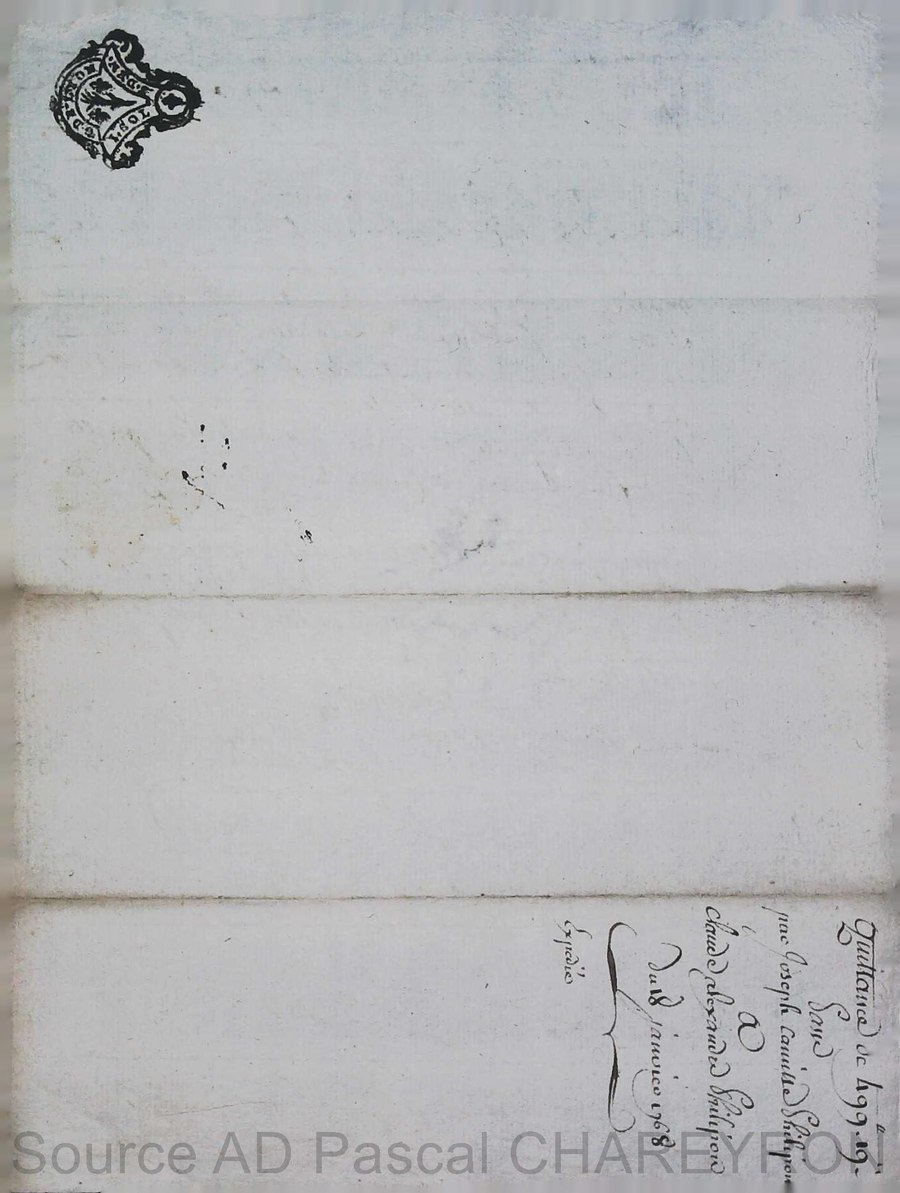 Quittance de 499.
passé
par Joseph camille Philipon
A
claude alexandre Philipon
du 18 janvier 1768
Expédié
Source AD Pascal CHAREYRON